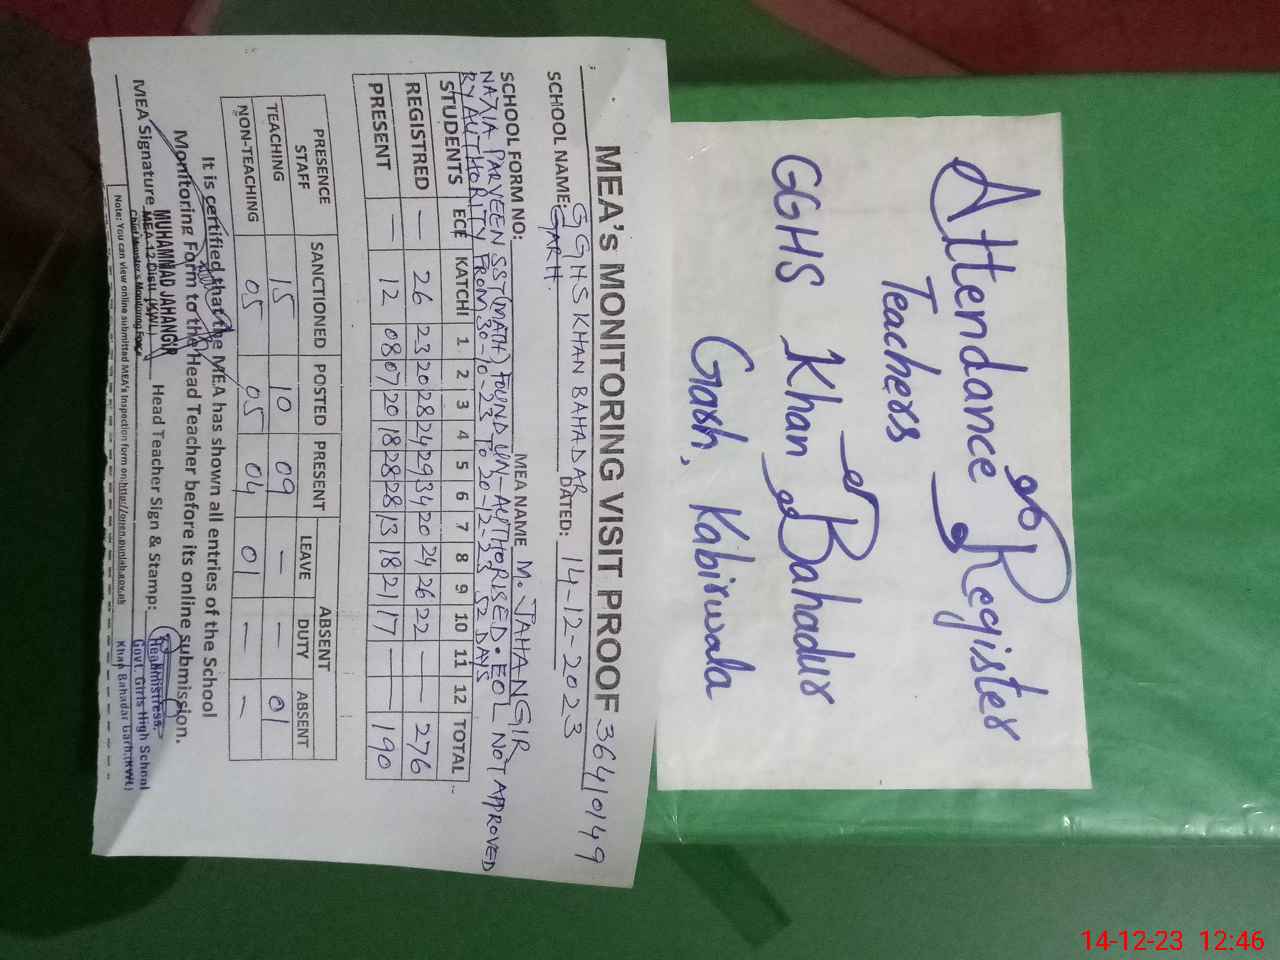 Attendance Register
Teachers
GGHS Khan Bahadur
Garh, Kabirwala
MEA's MONITORING VISIT PROOF 36410149
SCHOOL NAME: GGHS KHAN BAHADAR DATED: 14-12-2023
GARH.
SCHOOL FORM NO: MEA NAME M. JAHANGIR
NAZIA PARVEEN SST(MATH) FOUND UN-AUTHORISED. EOL NOT APPROVED
BY AUTHORITY FROM 30-10-23 To 20-12-23 52 DAYS
STUDENTS ECE KATCHI 1 2 3 4 5 6 7 8 9 10 11 12 TOTAL
REGISTRED — 26 23 20 28 24 29 34 20 24 26 22 — — 276
PRESENT — 12 08 07 20 18 28 28 13 18 21 17 — — 190
PRESENCE STAFF SANCTIONED POSTED PRESENT ABSENT
LEAVE DUTY ABSENT
TEACHING 15 10 09 — — 01
NON-TEACHING 05 05 04 01 — —
It is certified that the MEA has shown all entries of the School
Monitoring Form to the Head Teacher before its online submission.
MEA Signature Head Teacher Sign & Stamp:
MUHAMMAD JAHANGIR
MEA-12 Distt (KWL)
Chief Minister's Monitoring Force
Headmistress
Govt. Girls High School
Khan Bahadar Garh (KWL)
Note: You can view online submitted MEA's Inspection form on: http://open.punjab.gov.pk
14-12-23 12:46